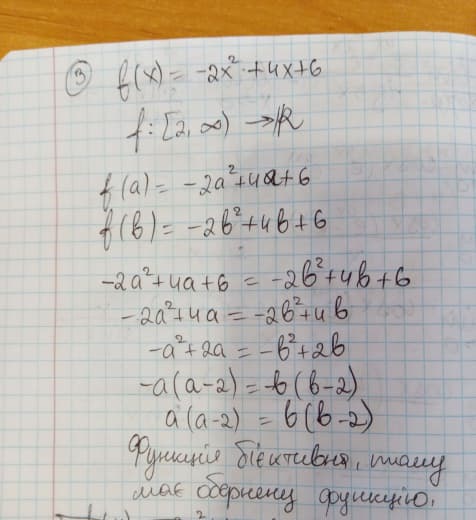 ③ f(x) = -2x² + 4x + 6
f: [2, ∞) → ℝ
f(a) = -2a² + 4a + 6
f(b) = -2b² + 4b + 6
-2a² + 4a + 6 = -2b² + 4b + 6
-2a² + 4a = -2b² + 4b
-a² + 2a = -b² + 2b
-a(a-2) = -b(b-2)
a(a-2) = b(b-2)
Функція бієктивня, тому
має обернену функцію.